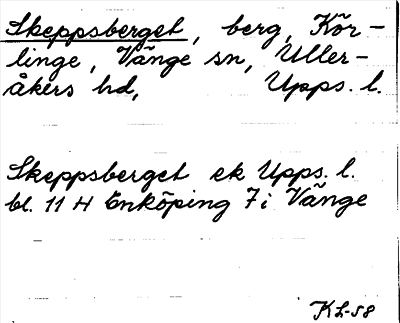 Skeppsberget, berg, Kör-
linge, Vänge sn, Uller-
åkers hd, Upps. l.
Skeppsberget ek Upps. l.
bl. 11 H Enköping 7 i Vänge
KL-58